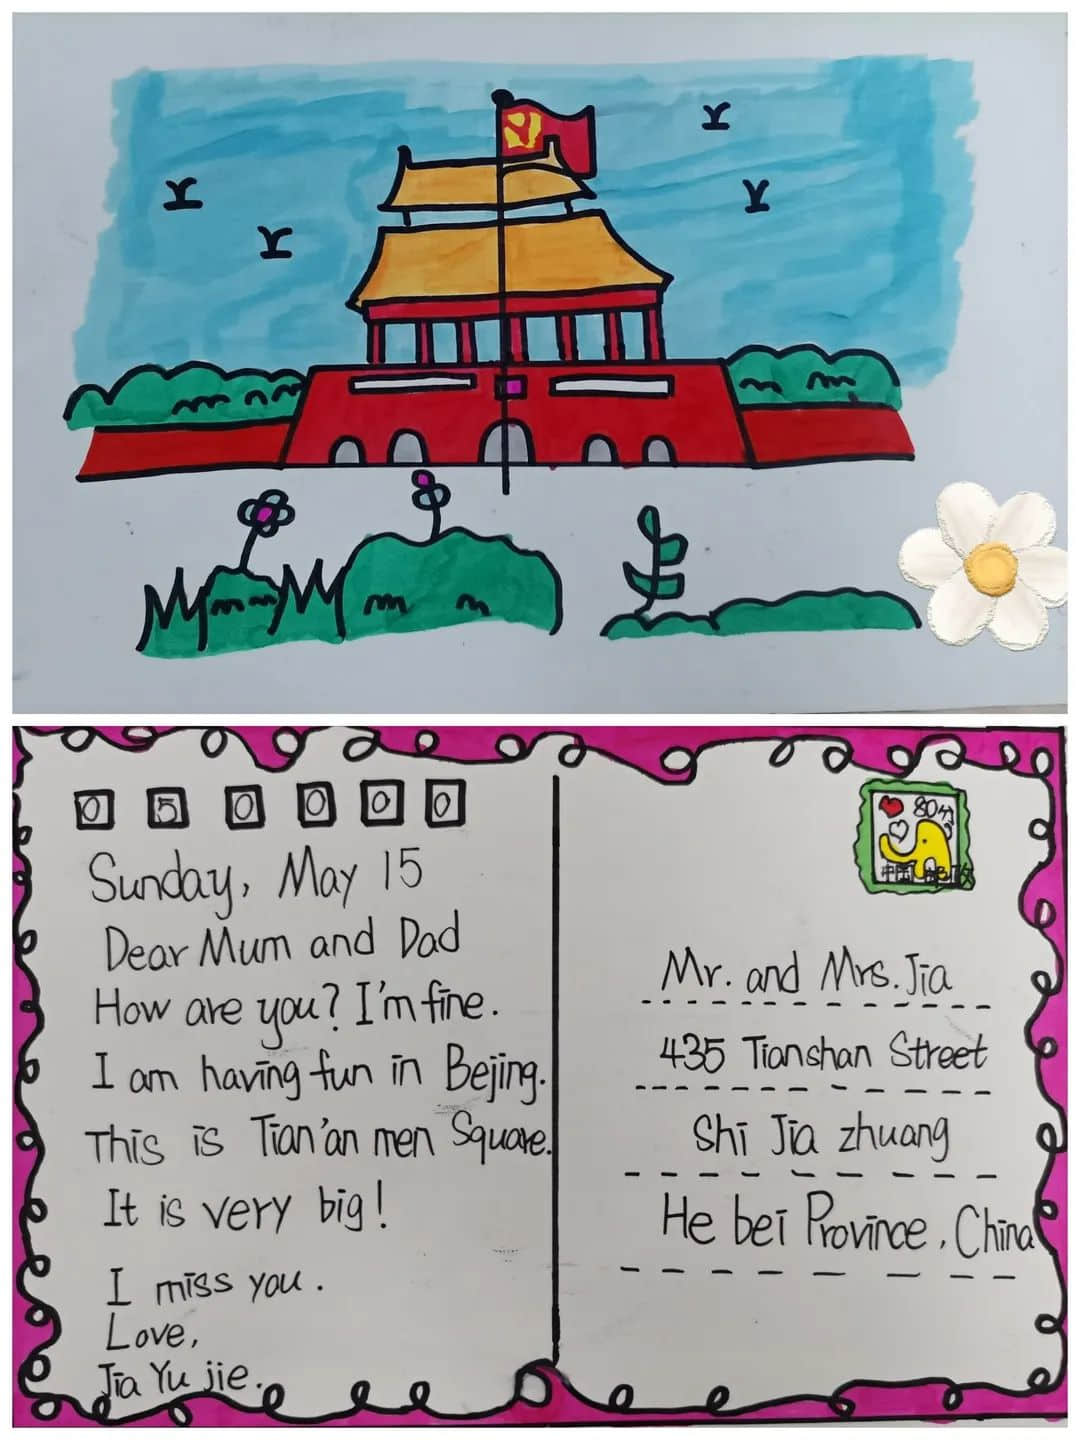 0 5 0 0 0 0
80分
中国邮政
Sunday, May 15
Dear Mum and Dad
How are you? I'm fine.
I am having fun in Bejing.
This is Tian'an men Square.
It is very big!
I miss you.
Love,
Jia Yu jie.
Mr. and Mrs. Jia
435 Tianshan Street
Shi Jia zhuang
He bei Province, China